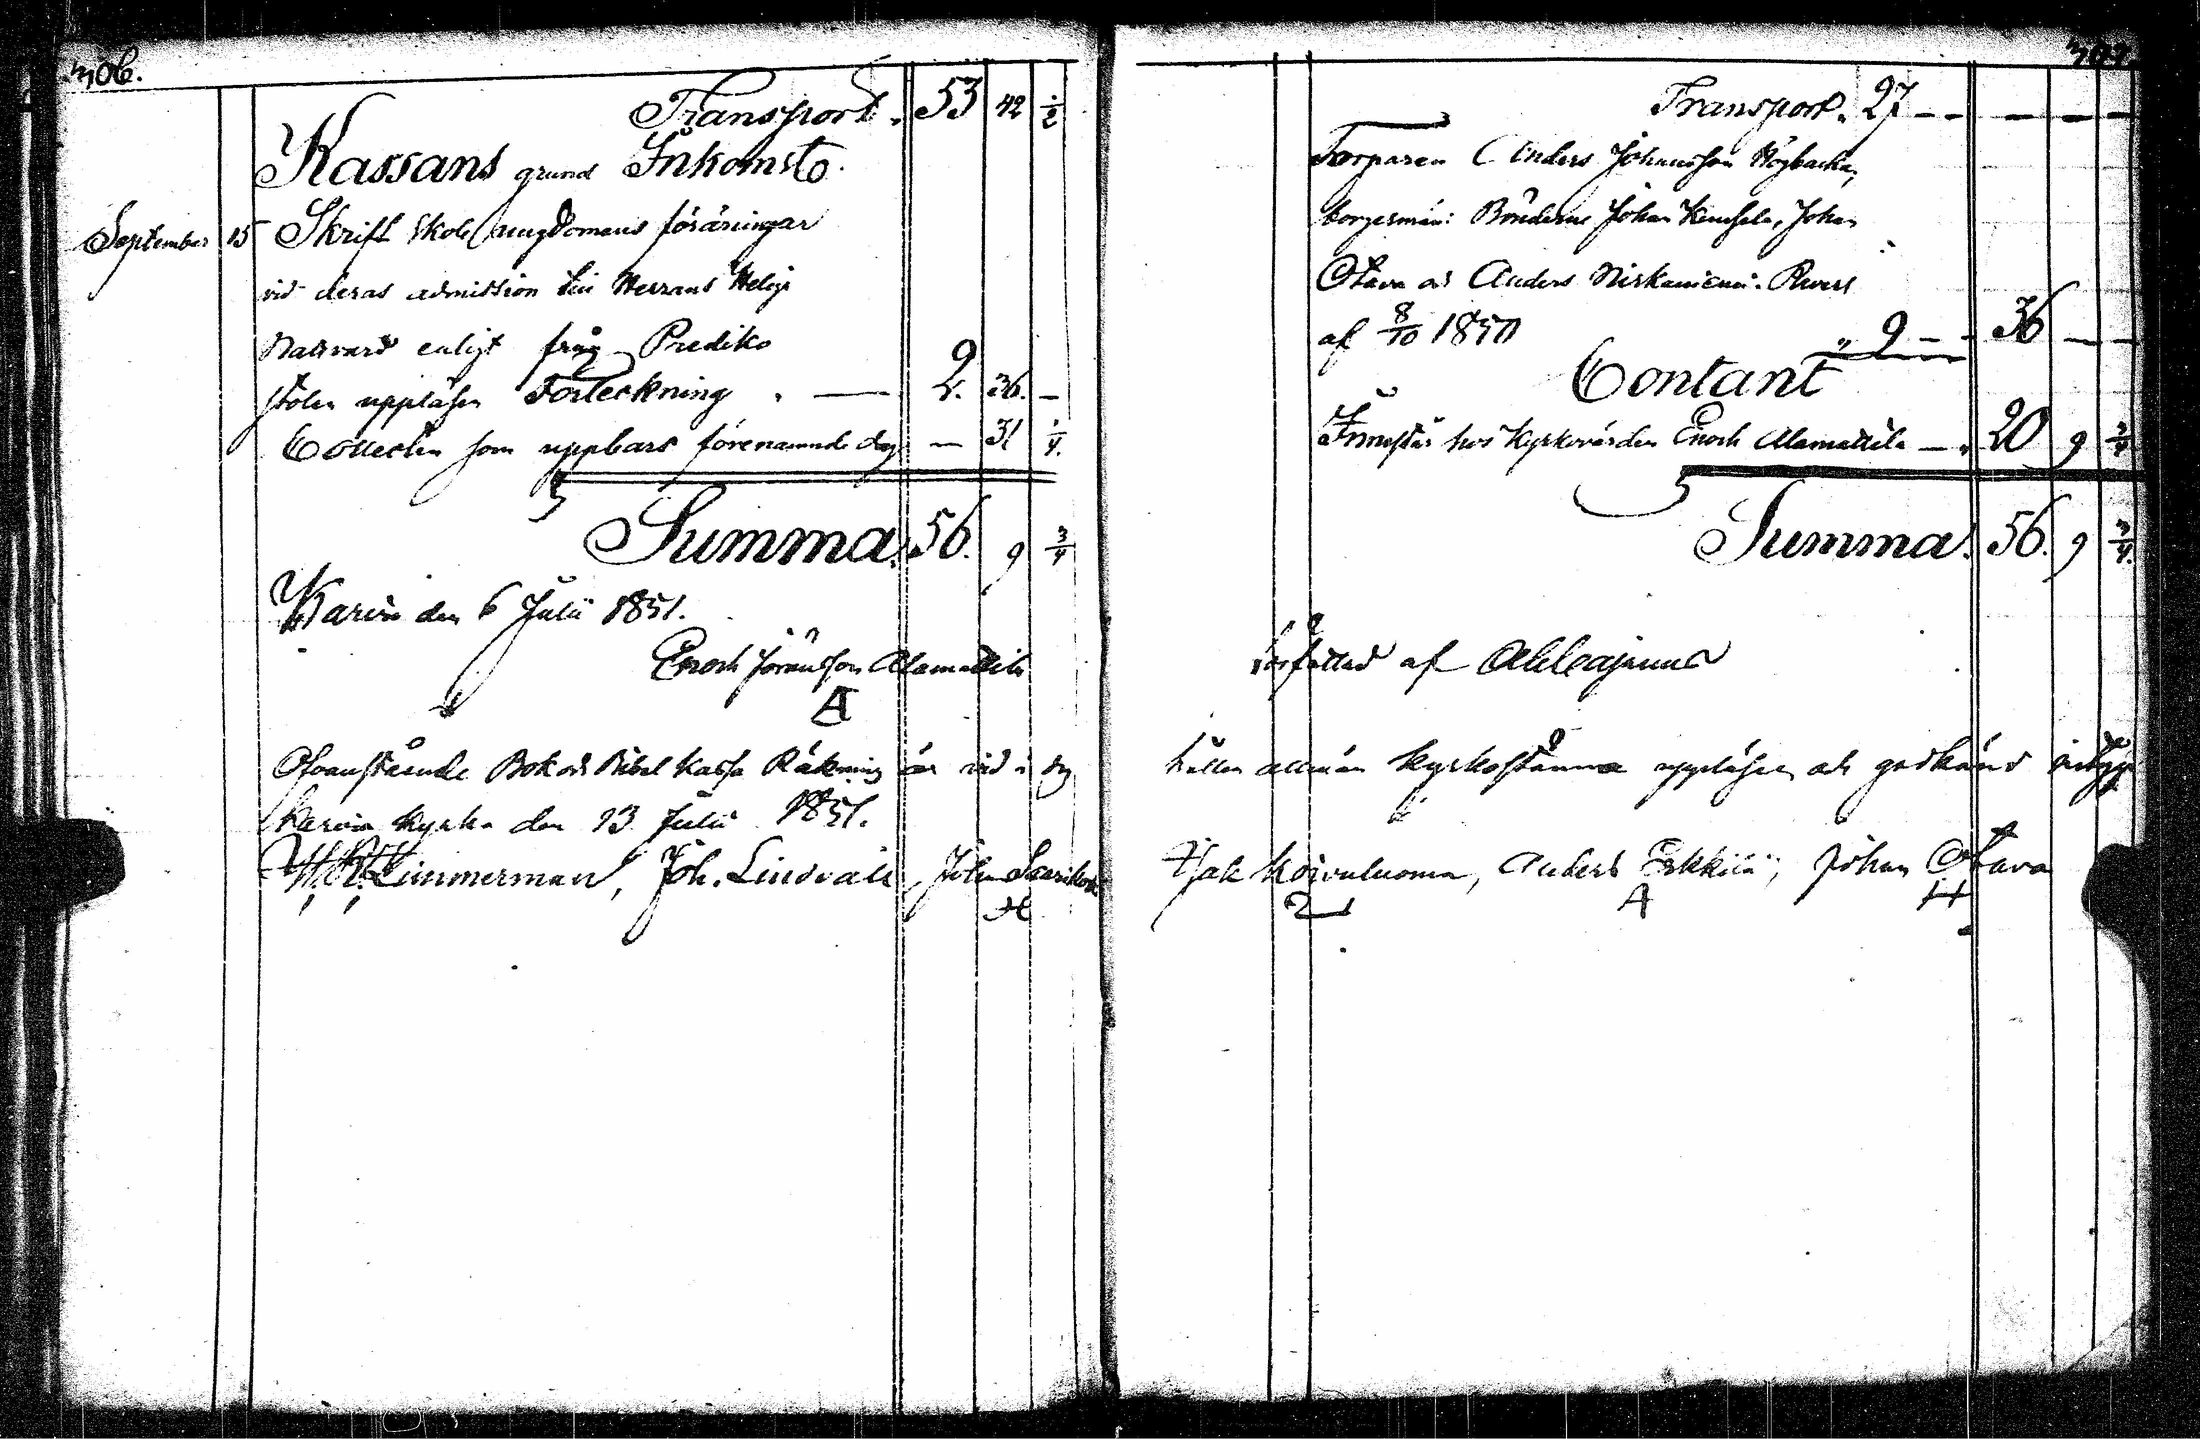 306.
Transport. 53 42 1/2
Kassans grund Inkomst.
September 15 Skrift skole ungdomens föräringar
vid deras admission till Herrans Helige
Nattvard enligt från Prediko
stolen uppläsen Förteckning . — 2. 36. —
Collecten som uppbars förenämnde dag — 31 1/4.
Summa. 56. 9 3/4
den 6 Julii 1851.
Enoch Jöransson Alamattila
A
Ofvanstående Bok och Bibel Kassa Räkning är vid i dag
Kyrka den 13 Julii 1851.
Zimmerman, Joh. Lindvall, Johan
307.
Transport. 27 — — — — —
Torparen Anders Johansson Högbacka,
borgesmän: Bönderne Johan Johan
Otava och Anders Niskaniemi. Revers
af 8/10 1850 " 9 — — 36 — —
Contant
Innestår hos Kyrkovärden Enoch Alamattila — 20 9 3/4
Summa. 56. 9 3/4.
författad af
hållen allmän Kyrkostämma uppläsen och godkänd
Isak Koivuluoma, Anders Erkkilä, Johan Otava
A H